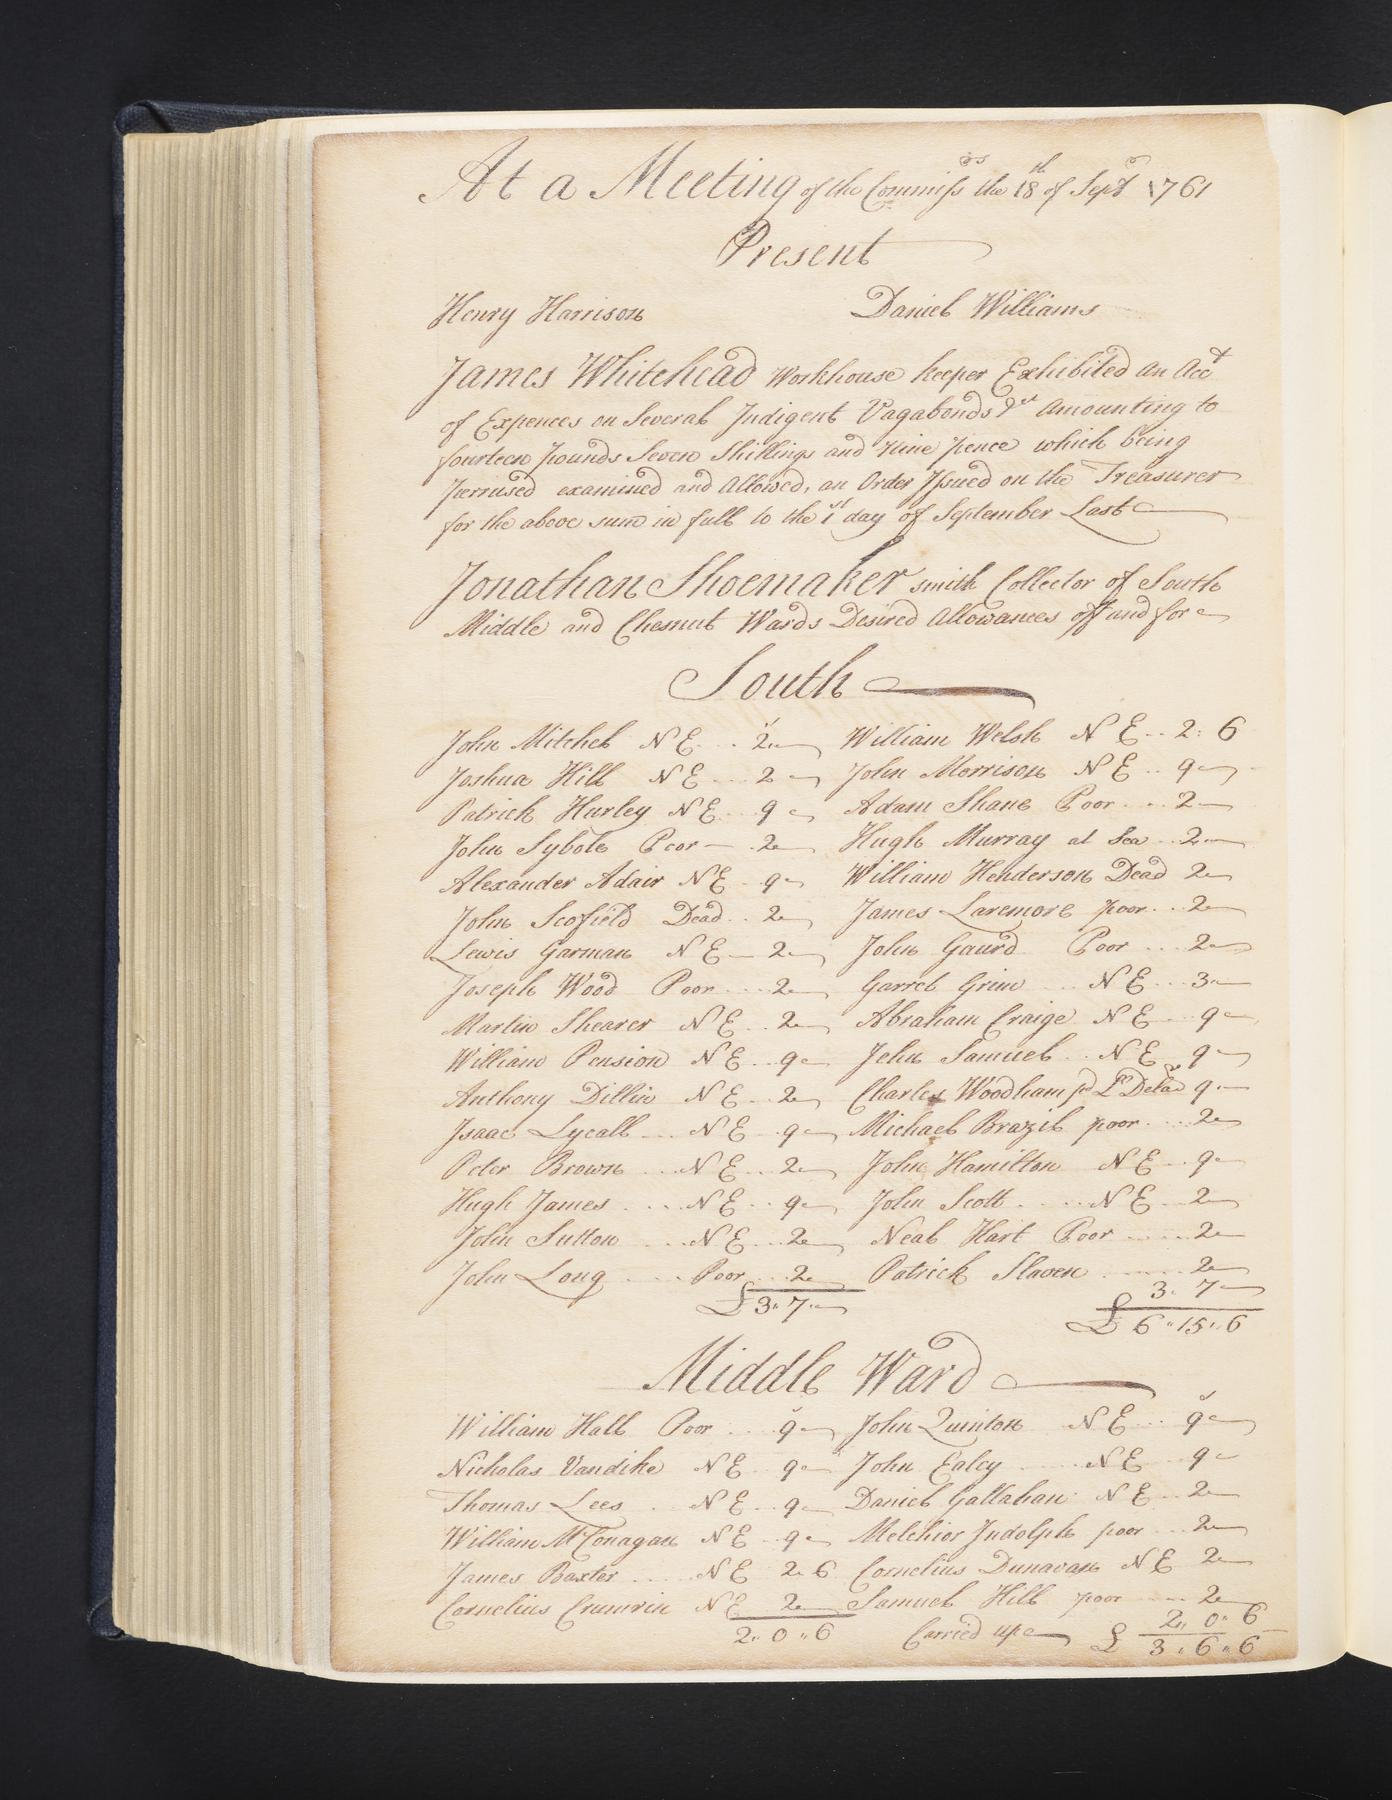 At a Meeting of the Commiss^rs the 18^th of Sept^r 1761
Present
Henry Harrison Daniel Williams
James Whitehead Workhouse keeper Exhibited an Acc^t
of Expences on Several Indigent Vagabonds &c^a Amounting to
fourteen pounds Seven Shillings and nine pence which being
Perrused examined and Allowed, an Order Issued on the Treasurer
for the above sum in full to the 1^st day of September Last
Jonathan Shoemaker smith Collector of South
Middle and Chesnut Wards Desired Allowances off and for
South
John Mitchel NE .. 2 William Welsh NE .. 2: 6
Joshua Hill NE ... 2 John Morrison NE .. 9
Patrick Hurley NE .. 9 Adam Shane Poor .... 2
John Sybole Poor — 2 Hugh Murray at Sea .. 2
Alexander Adair NE . 9 William Henderson Dead 2
John Scofield Dead .. 2 James Laremore poor ... 2
Lewis Garman NE — 2 John Gaurd Poor .... 2
Joseph Wood Poor .... 2 Garret Grim .. NE ... 3
Martin Shearer NE .. 2 Abraham Craige NE ... 9
William Pension NE .. 9 John Samuel .. NE 9
Anthony Dillin NE .. 2 Charles Woodham p^d 9
Isaac Lycall .... NE .. 9 Michael Brazil poor .... 2
Peter Brown .... NE .. 2 John Hamilton NE .. 9
Hugh James ..... NE .. 9 John Scott ..... NE .. 2
John Sutton .... NE ... 2 Neal Hart Poor ...... 2
John Long ..... Poor .. 2 Patrick Slaven ....... 2
£3,, 7,, 3,, 7
£ 6,, 15,, 6
Middle Ward
William Hall Poor ... 9 John Quinton NE ... 9
Nicholas Vandike NE .. 9 John Ealey ..... NE .. 9
Thomas Lees .. NE .. 9 Daniel Gallahan NE .. 2
William McConagan NE .. 9 Melchior Indolph poor ... 2
James Baxter ..... NE 2.. 6 Cornelius Dunavan NE 2
Cornelius Crumrin NE 2 Samuel Hill poor .... 2
2,, 0,, 6 Carried up 2,, 0,, 6
£ 3,, 6,, 6